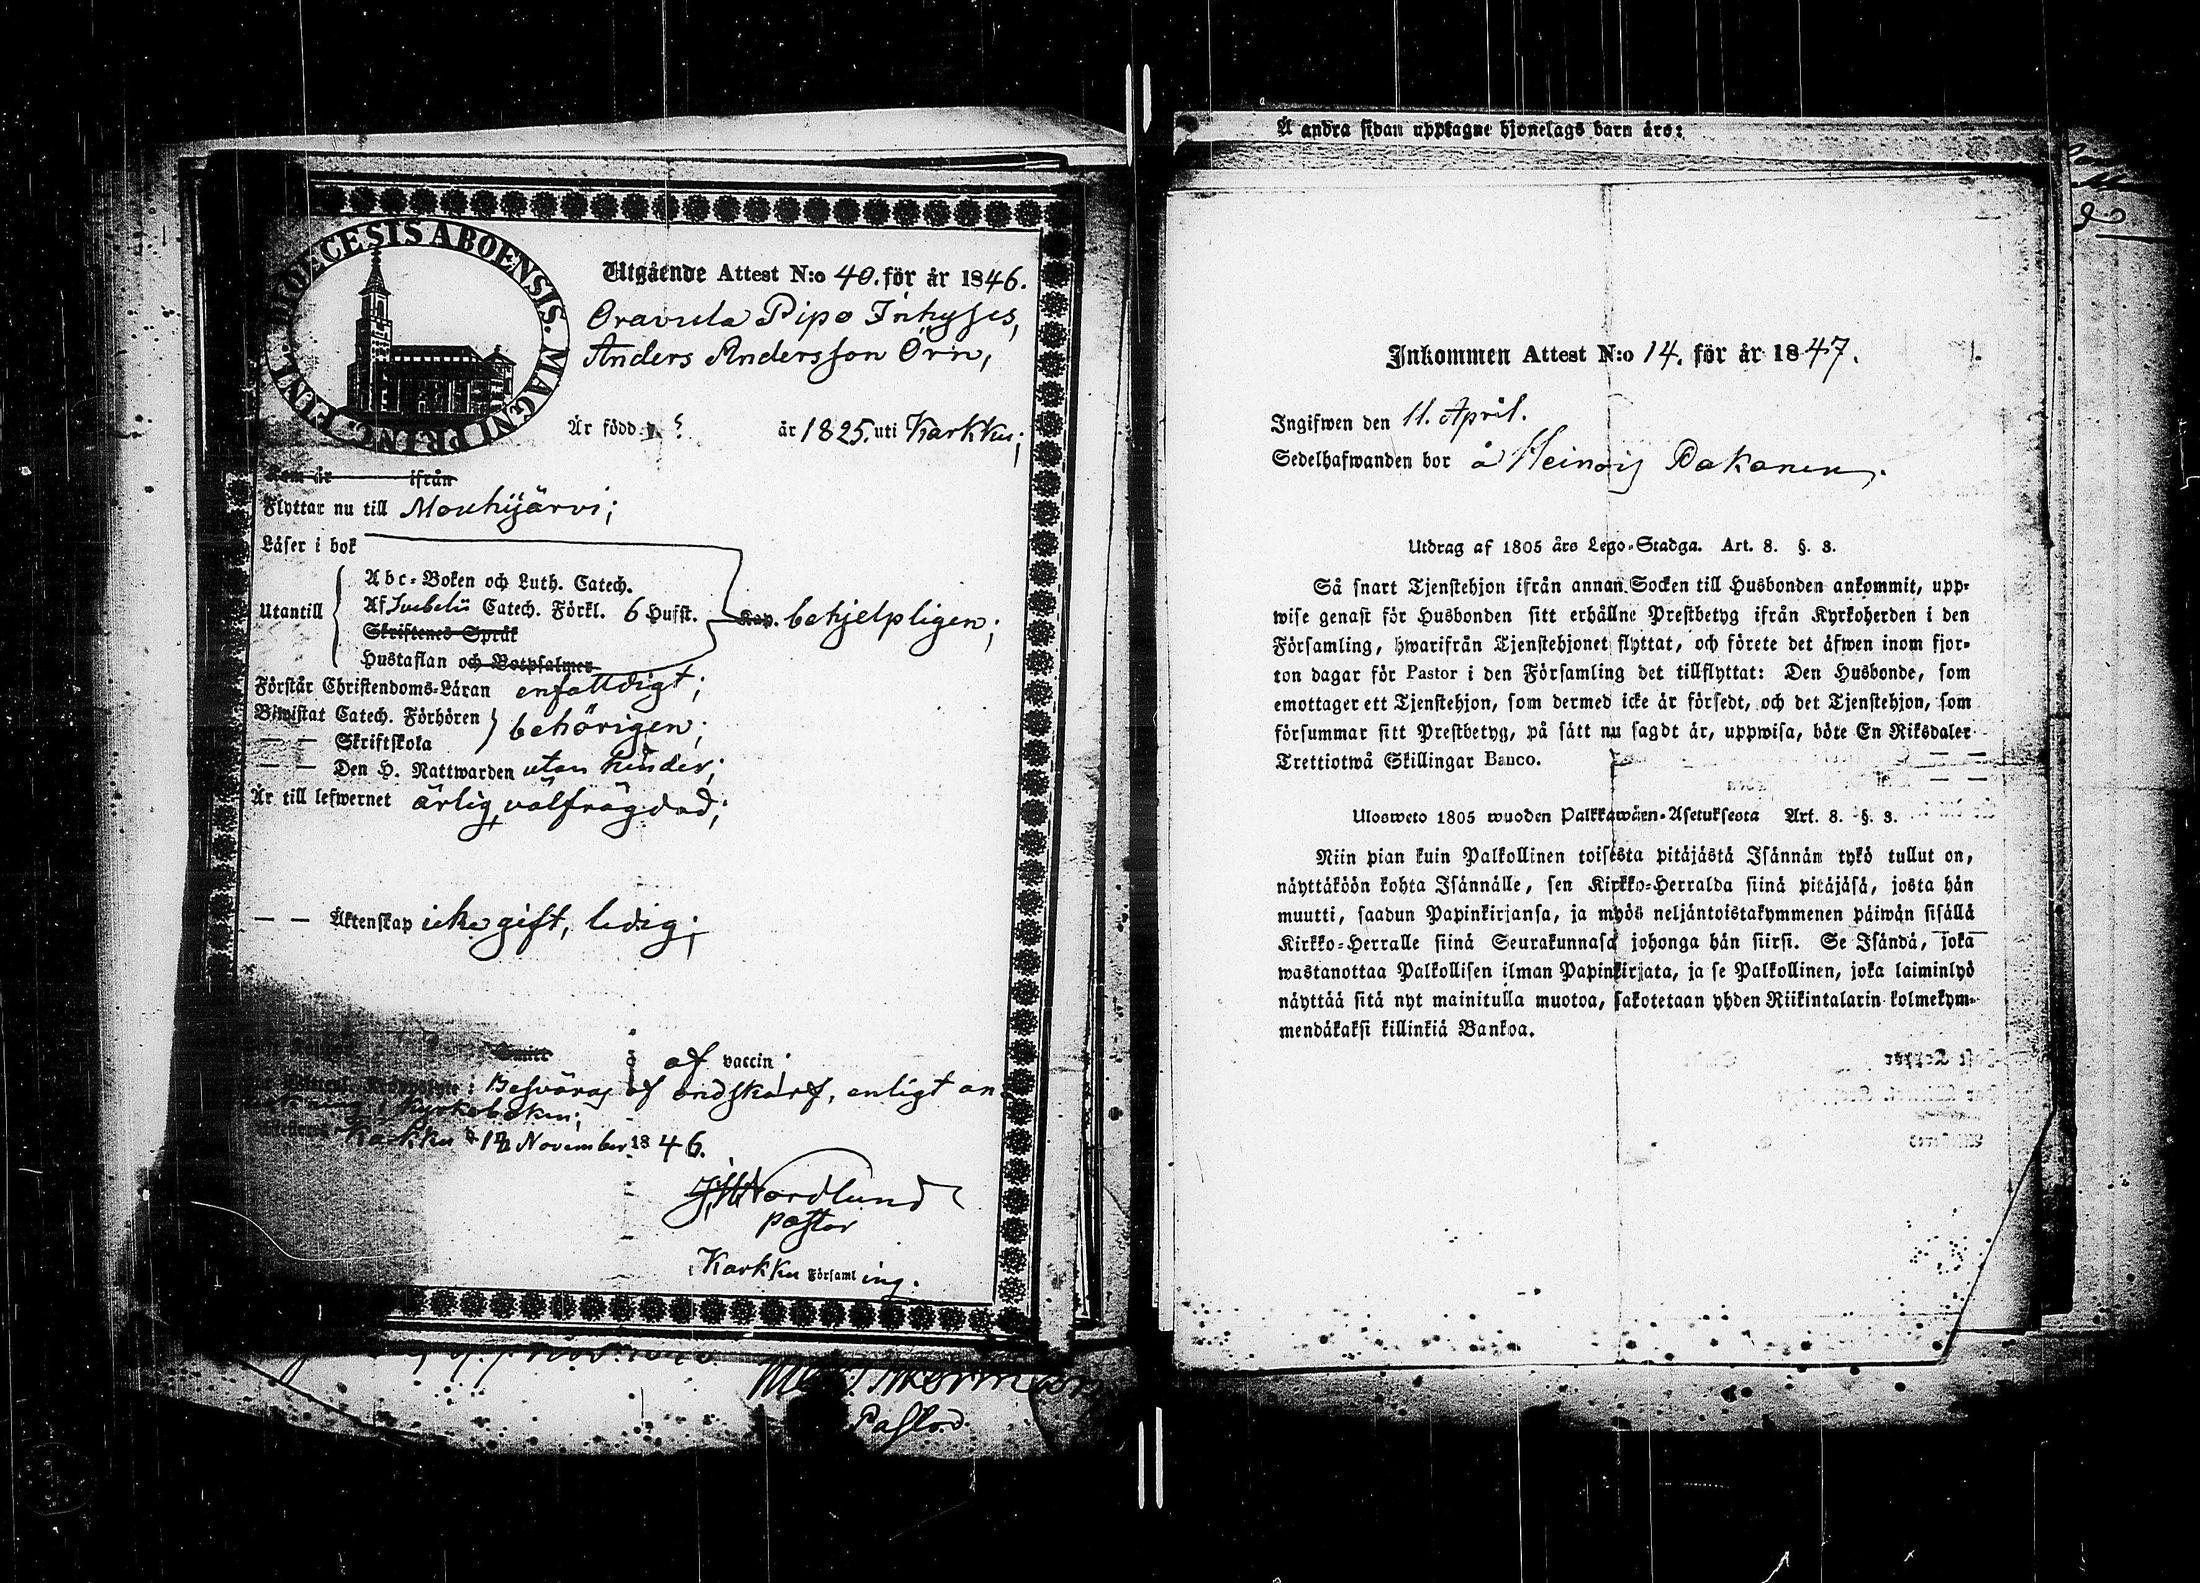 DIOECESIS ABOENSIS. MAGNI PRINC. FINL.
Utgående Attest N:o 40. för år 1846.
Oravula Pipo Inhyses,
Anders Andersson Örn,
Är född ? år 1825. uti Karkku;
Som är ifrån
Flyttar nu till Mouhijärvi;
Läser i bok
Utantill
Abc-Boken och Luth. Catech.
Af Svebelii Catech. Förkl. 6 Hufst.
Skriftenes Språk
Hustaflan och Botpsalmer
Kap. behjelpligen;
Förstår Christendoms-Läran enfaldigt;
Biwistat Catech. Förhören
— — Skriftskola
behörigen;
— — Den H. Nattwarden utan hinder;
Är till lefwernet ärlig, välfrägdad;
— — Äktenskap icke gift, ledig;
af vaccin;
Besväras af ondskorf, enligt an
i Kyrkoboken;
Karkku d 18 November 1846.
Nordlund
pastor
i Karkku Församling.
Pastor
Å andra sidan upptagne hjonelags barn äro:
Inkommen Attest N:o 14. för år 1847.
Ingifwen den 11. April.
Sedelhafwanden bor å Heinois Pakanen.
Utdrag af 1805 års Lego-Stadga. Art. 8. §. 3.
Så snart Tjenstehjon ifrån annan Socken till Husbonden ankommit, upp-
wise genast för Husbonden sitt erhållne Prestbetyg ifrån Kyrkoherden i den
Församling, hwarifrån Tjenstehjonet flyttat, och förete det äfwen inom fjor-
ton dagar för Pastor i den Församling det tillflyttat: Den Husbonde, som
emottager ett Tjenstehjon, som dermed icke är försedt, och det Tjenstehjon, som
försummar sitt Prestbetyg, på sätt nu sagdt är, uppwisa, böte En Riksdaler
Trettiotwå Skillingar Banco.
Ulosweto 1805 wuoden Palkkawäen-Asetuksesta Art. 8. §. 3.
Niin pian kuin Palkollinen toisesta pitäjästä Isännän tykö tullut on,
näyttäköön kohta Isännälle, sen Kirkko-Herralda siinä pitäjäsä, josta hän
muutti, saadun Papinkirjansa, ja myös neljäntoistakymmenen päiwän sisällä
Kirkko-Herralle siinä Seurakunnasa johonga hän siirsi. Se Isändä, joka
wastanottaa Palkollisen ilman Papinkirjata, ja se Palkollinen, joka laiminlyö
näyttää sitä nyt mainitulla muotoa, sakotetaan yhden Riikintalarin kolmekym-
mendäkaksi killinkiä Bankoa.